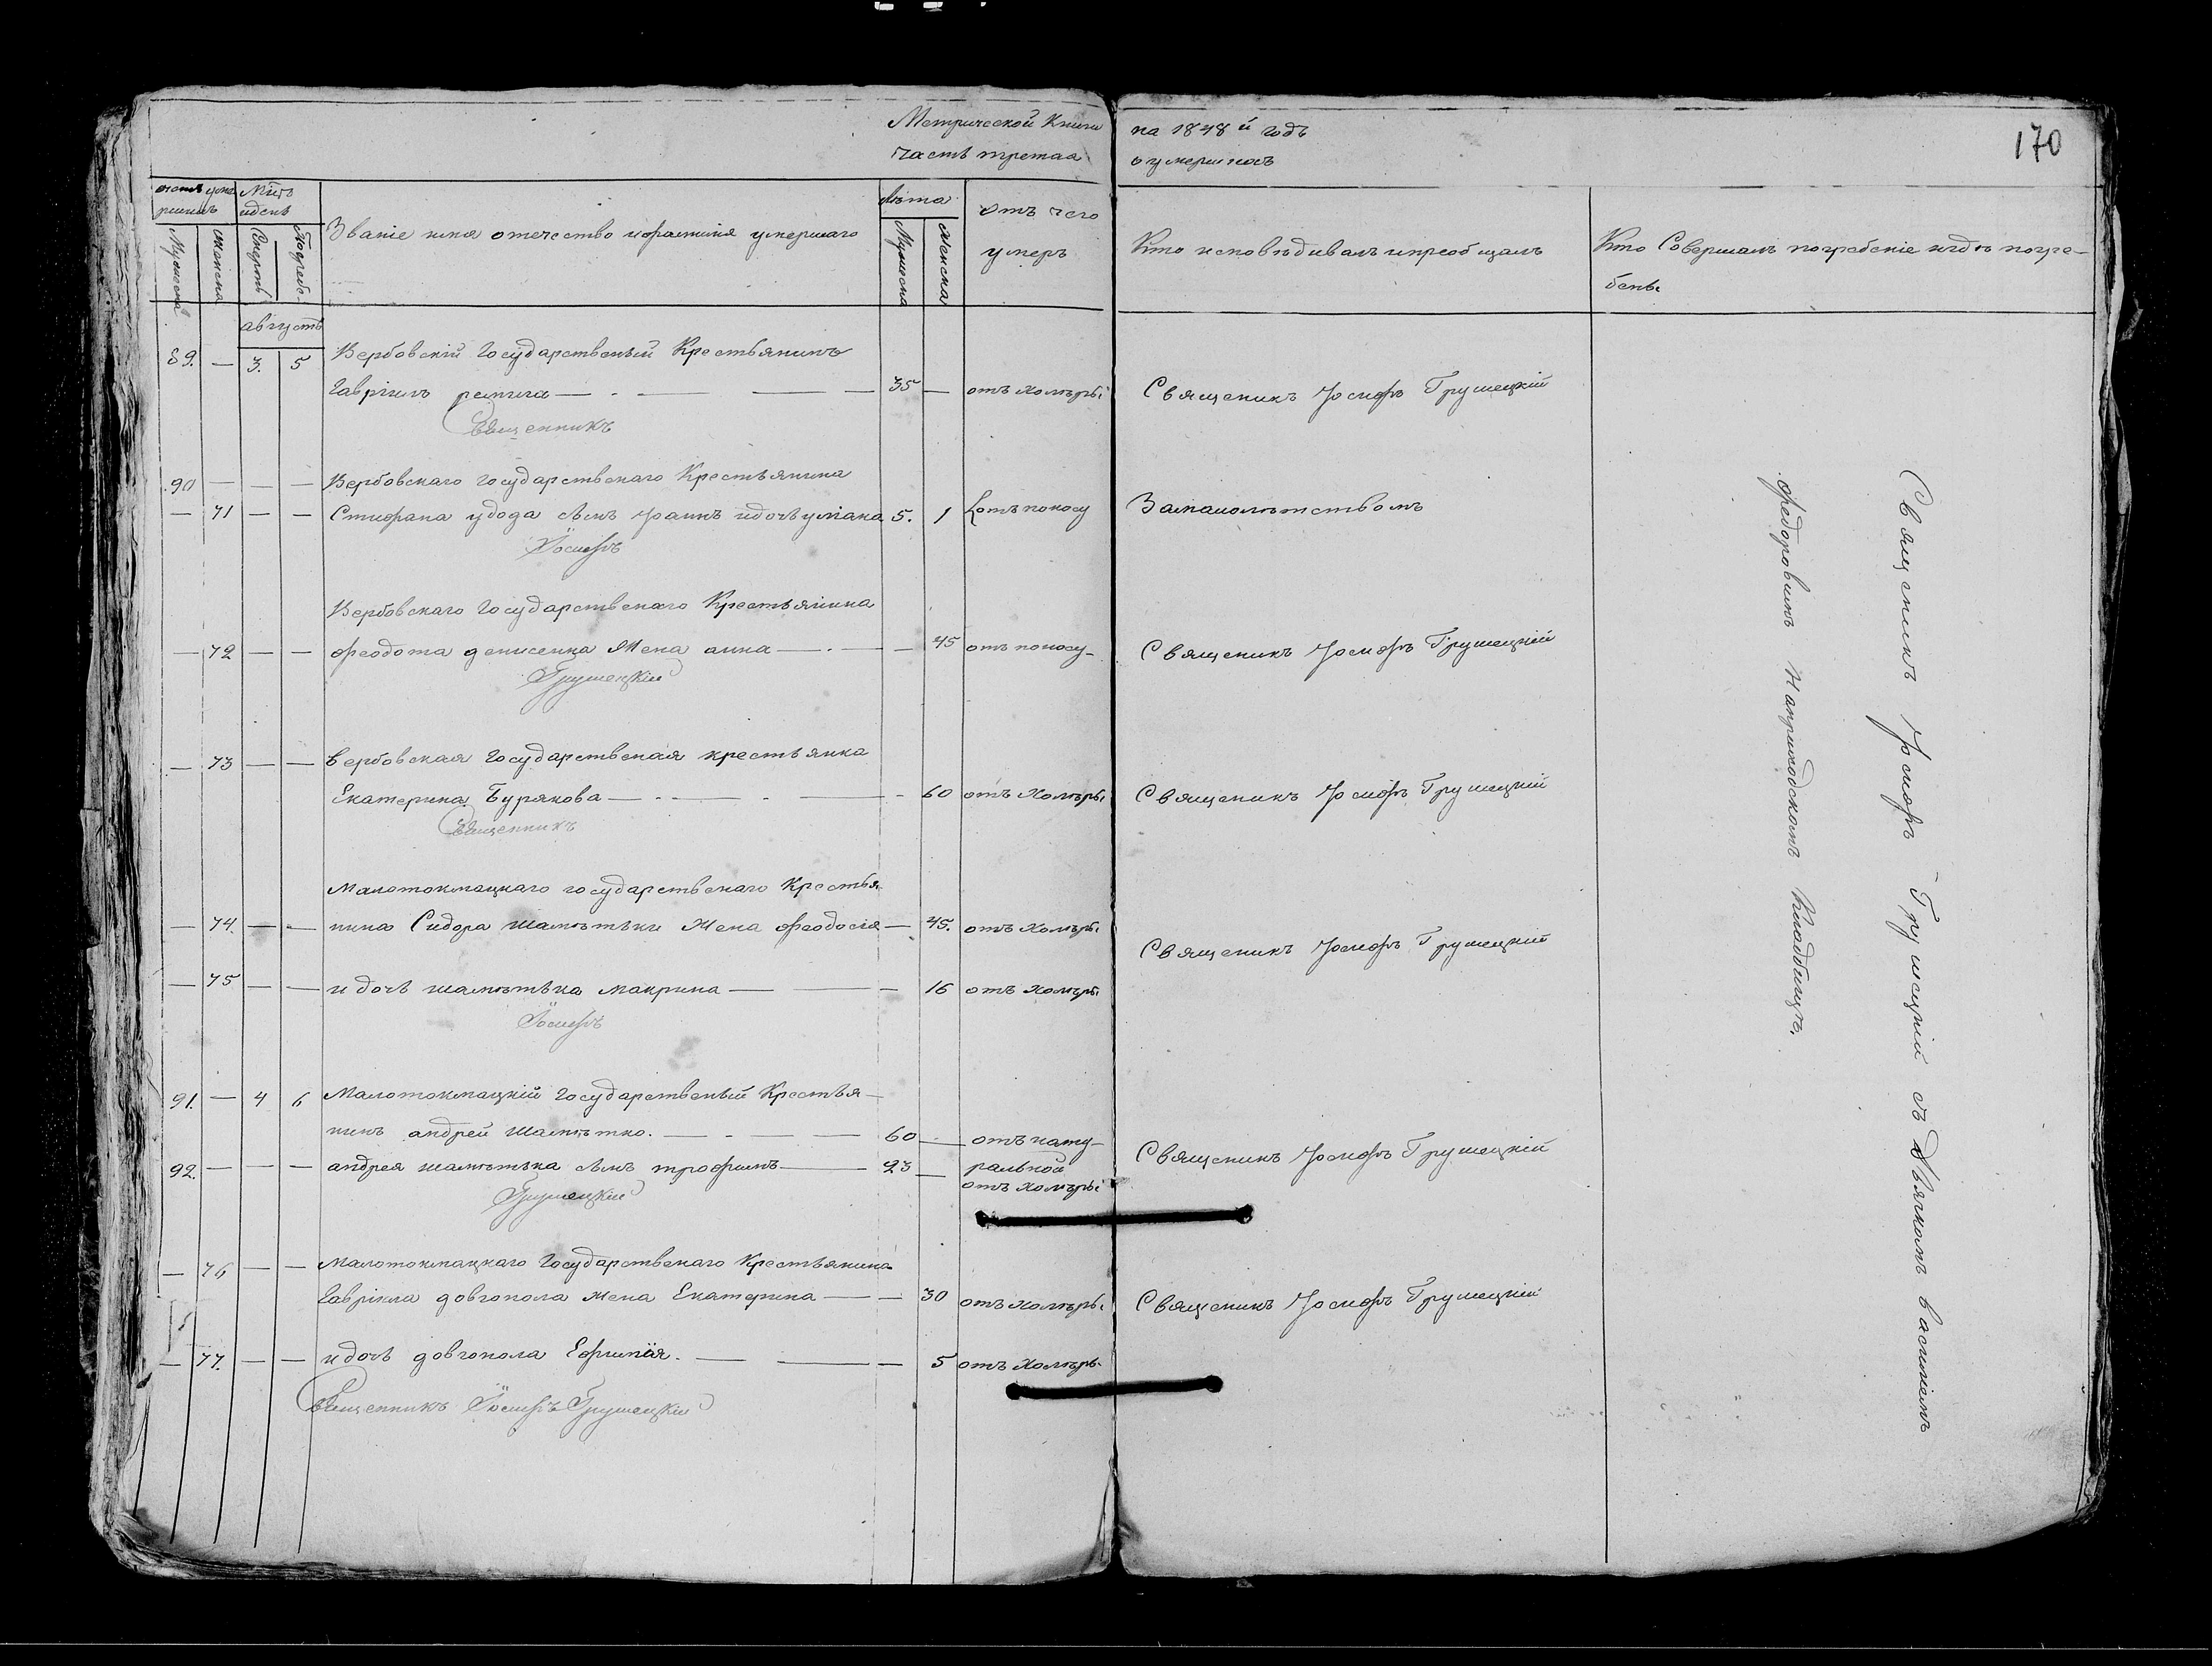 Метрической Книги на 1848й годъ
Часть третая о умершихъ
170
Мужеска
женска
Смерть
Погреб.
Званіе имя отечество ифамилія умершаго
лѣта
Мужеска
Женска
отъ чего
умеръ
Кто исповѣдивалъ ипреобщалъ
Кто Совершалъ погребеніе игдѣ погре-
бенъ
августъ
89. — 3. 5 Вербовскій Государственый Крестьянинъ
Гавріилъ 35 — отъ холѣры Священикъ Іосифъ Грушецкій
Священникъ
90 — — — Вербовскаго государственаго Крестьянина
— 71 — — Стифана удода сынъ Іоанъ идочь 5. 1 отъ поносу Замалолѣтствомъ
Іосифъ
Вербовскаго Государственаго Крестьянина
— 72 — — феодота денисенка Жена анна — 45 отъ поносу Священикъ Іосифъ Грушецкій
Грушецкій
— 73 — — вербовская государственая крестьянка
Екатерина Бурякова — 60 отъ Холѣры Священикъ Іосифъ Грушецкій
Священникъ
Малотокмацкаго государственаго Крестья
— 74. — — нина Сидора шамѣтьки Жена феодосія — 45. отъ Холѣры
Священикъ Іосифъ Грушецкій
— 75 — — и дочь шамѣтька макрина — 16 отъ холѣры
Іосифъ
91. — 4 6 Малотокмацкій Государственый Крестья-
нинъ андрей Шамѣтко. 60 — отъ нату-
ральной
Священикъ Іосифъ Грушецкій
92. — — — андрея шамѣтька сынъ трофимъ 23 —
отъ Холѣры
Грушецкій
— 76 — — Малотокмацкаго Государственаго Крестьянина
Гавріила довгопола жена Екатерина — 30 отъ холѣры Священикъ Іосифъ Грушецкій
— 77. — — и дочь довгопола Ефимія. — 5 отъ Холѣры
Священникъ Іосифъ Грушецкій
Священикъ Іосифъ Грушецкій съ Дьячкомъ василіемъ
федоровимъ Наприходскомъ Кладбищѣ.